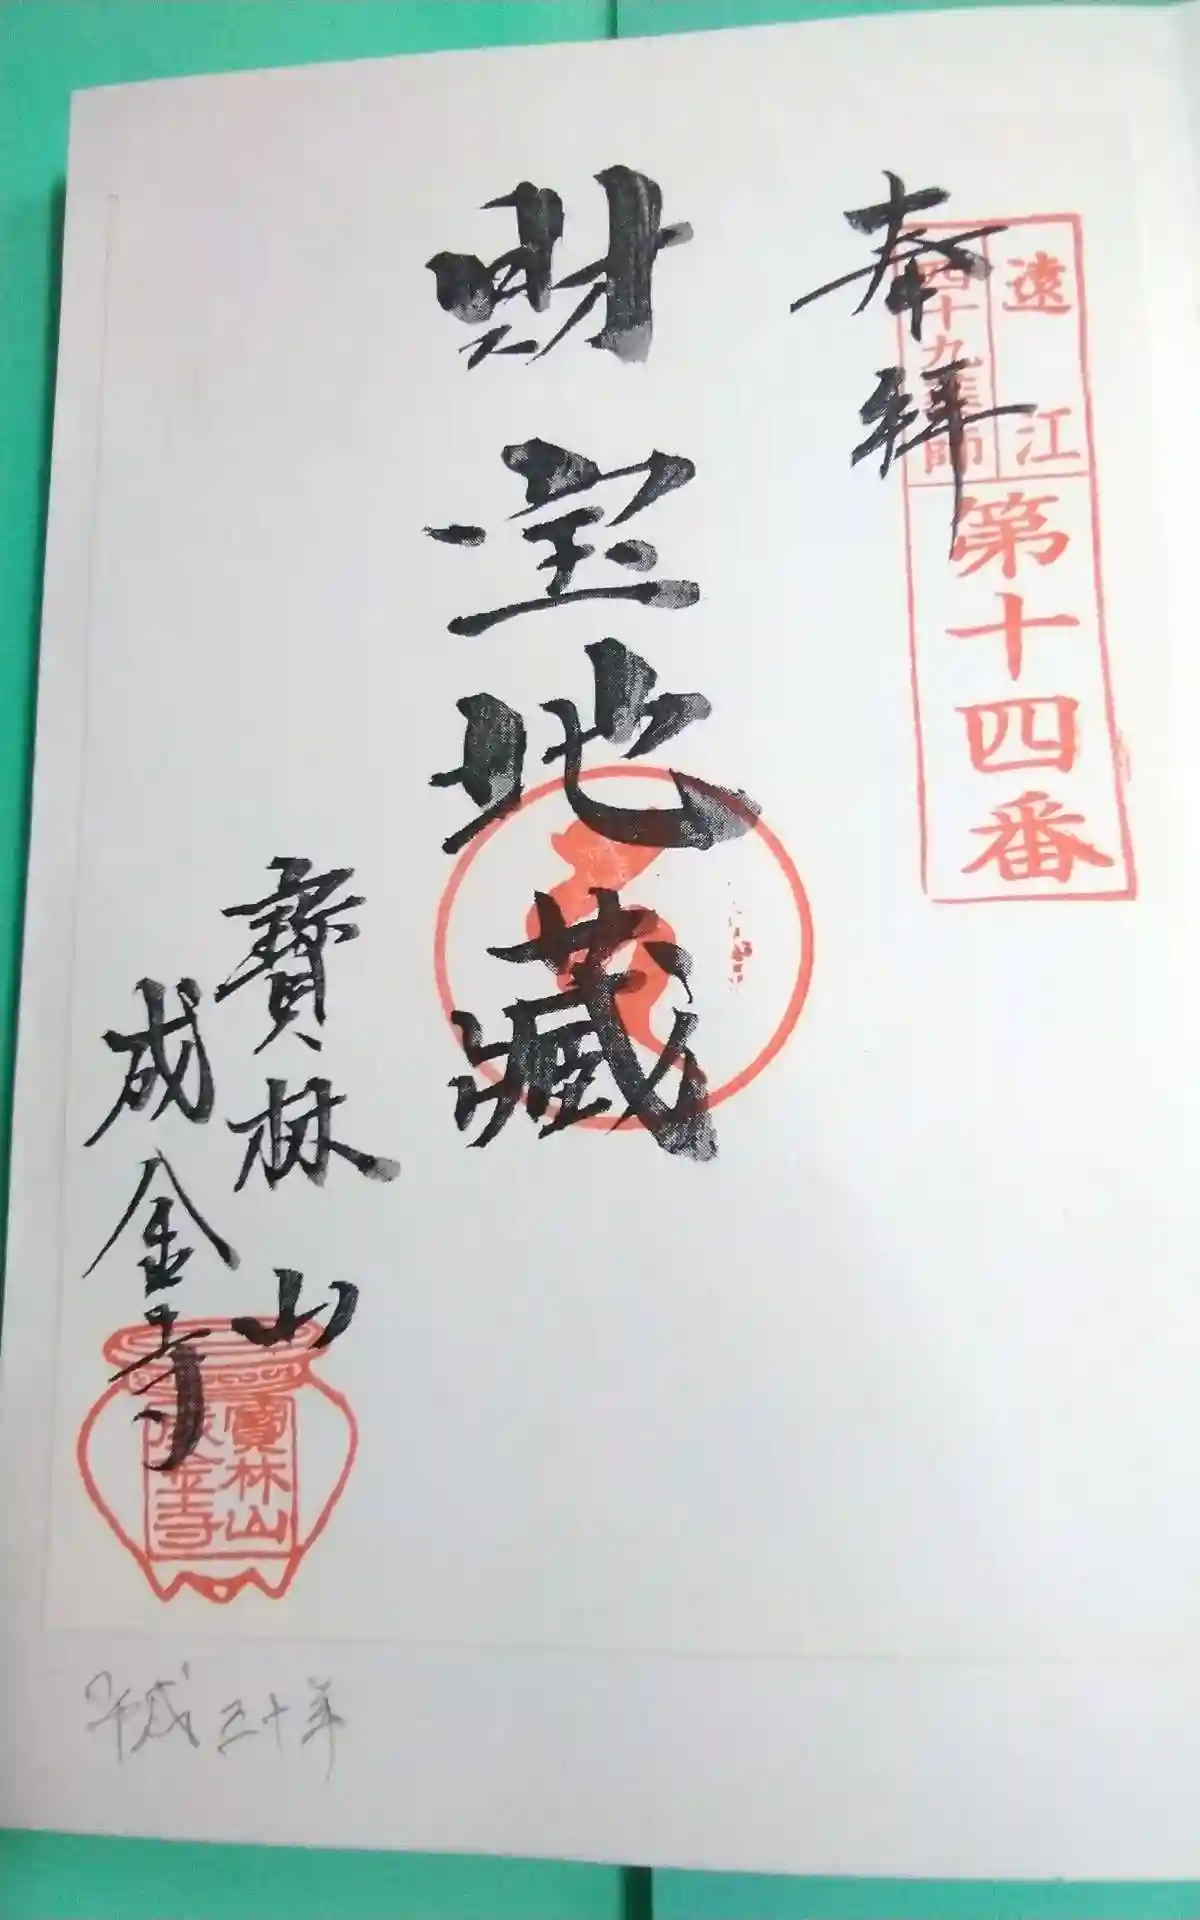 奉拝
遠江
四十九薬師
第十四番
財宝地蔵
寳林山
成金寺
寳林山
成金寺
平成三十年